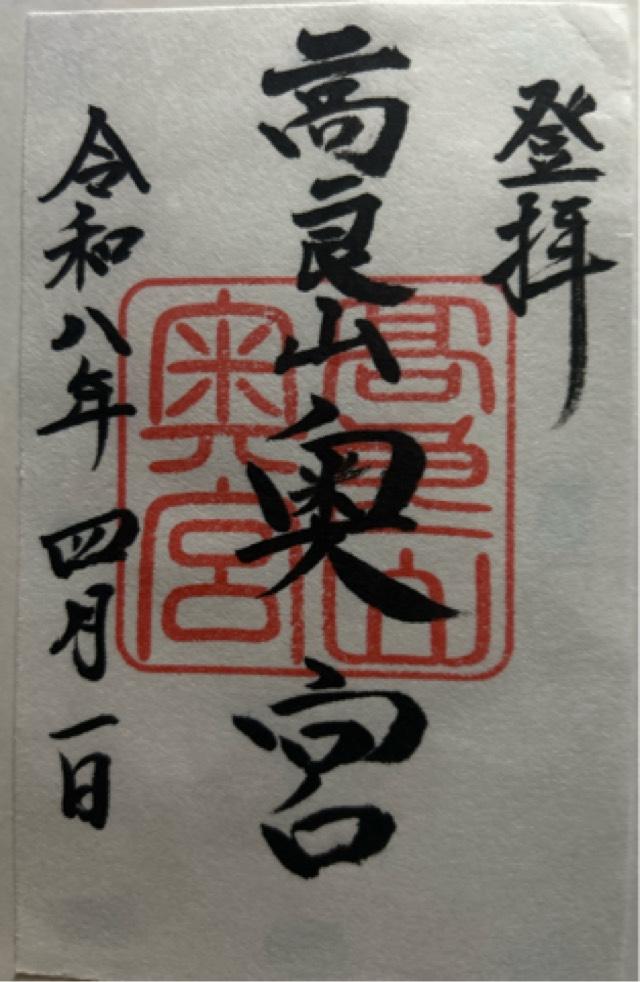 登拝
高良山奥宮
令和八年 四月一日
高良山
奥宮